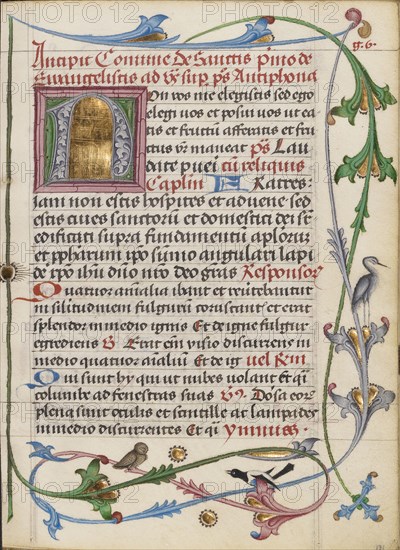 Incipit Comune De Sanctis p̃mo de
Ewangelistis ad vr̃ sup̃ pš Antiphona
g. 6.
Non vos me elegistis sed ego
elegi vos et posui vos ut ea
tis et fructũ afferatis et fru
ctus vr̃ maneat pš Lau
date pueri cũ reliquis
Caplm Fratres:
iam non estis hospites et aduene sed
estis ciues sanctorũ et domestici dei
edificati supra fundamentũ aplorum
et ppharum ip̃o sũmo angulari lapi
de xp̃o ihũ dño nrõ deo gr̃as Responsor
Quatuor aĩalia ibant et reũtebantur
in silitudinem fulguris coruscantis et erat
splendor in medio ignis Et de igne fulgur
egrediens Erat cum visio discurrens in
medio quatuor aĩaliũ Et de ig vel Rm
Qui sunt hy qui ut nubes volant et q̃i
columbe ad fenestras suas Dorsa eor
plena sunt oculis et scintille ac lampades
in medio discurrentes Et q̃i Ymnus